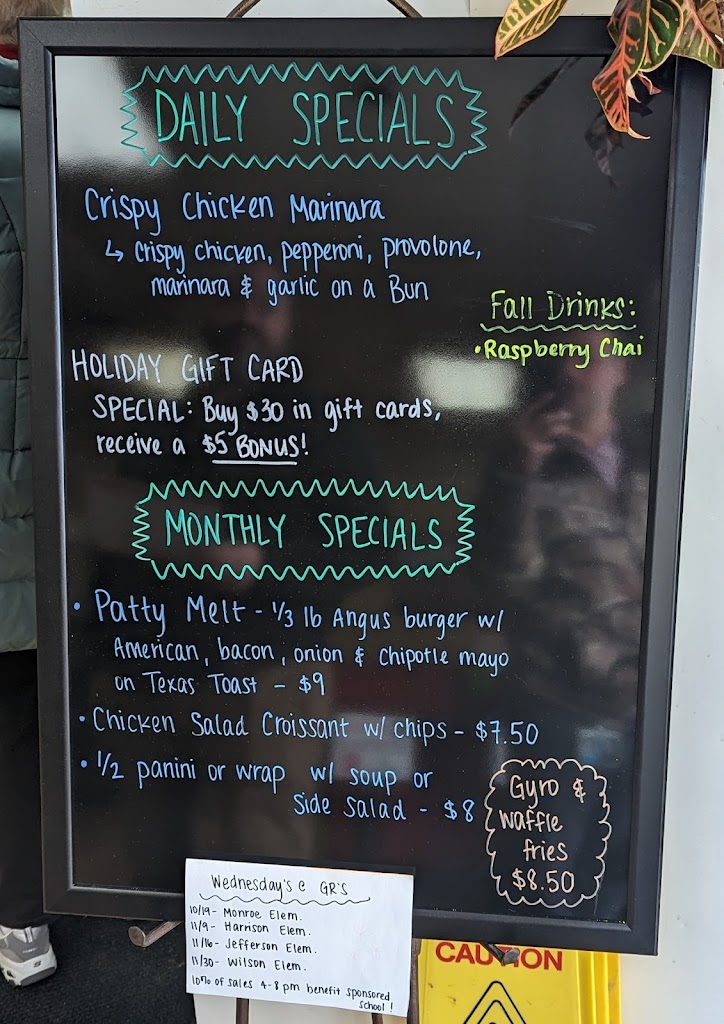 DAILY SPECIALS
Crispy Chicken Marinara
↳ Crispy chicken, pepperoni, provolone,
marinara & garlic on a Bun
Fall Drinks:
• Raspberry Chai
HOLIDAY GIFT CARD
SPECIAL: Buy $30 in gift cards,
receive a $5 BONUS!
MONTHLY SPECIALS
• Patty Melt - 1/3 lb Angus burger w/
American, bacon, onion & chipotle mayo
on Texas Toast - $9
• Chicken Salad Croissant w/ chips - $7.50
• 1/2 panini or wrap w/ soup or
side salad - $8
Gyro &
waffle
fries
$8.50
Wednesday's @ GR'S
10/19 - Monroe Elem.
11/9 - Harrison Elem.
11/16 - Jefferson Elem.
11/30 - Wilson Elem.
10% of sales 4-8 pm benefit sponsored
school!
CAUTION